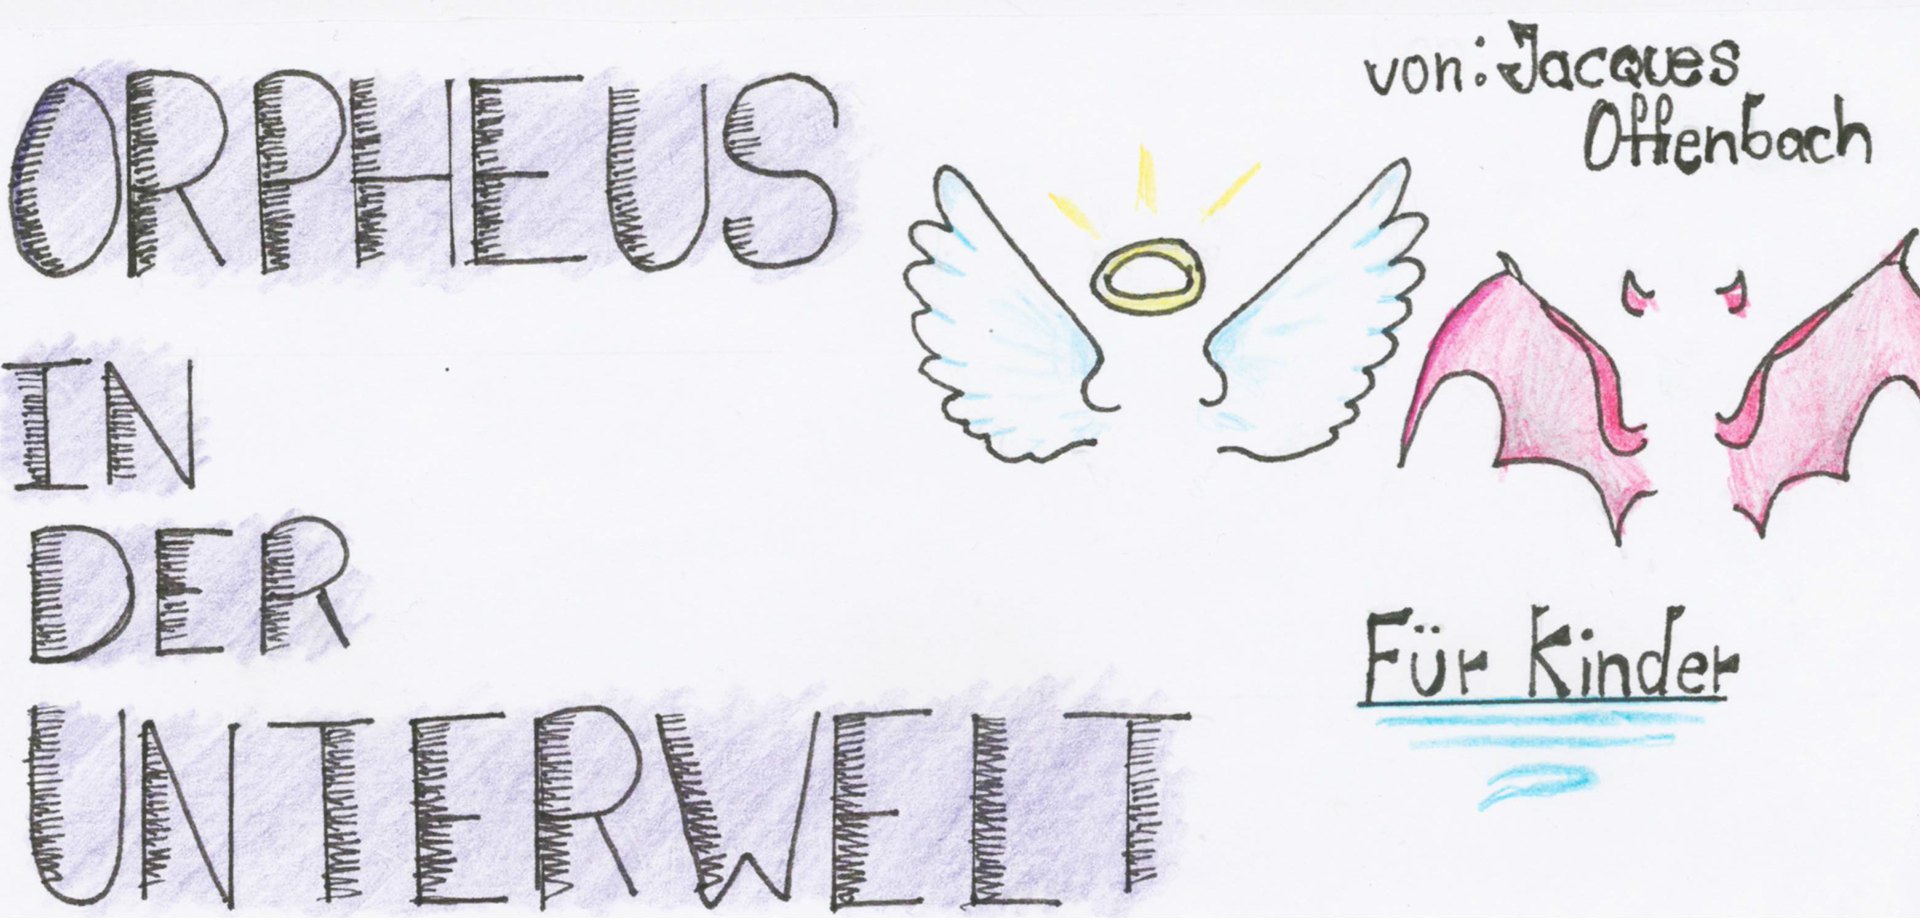 ORPHEUS
IN
DER
UNTERWELT
von: Jacques
Offenbach
Für Kinder